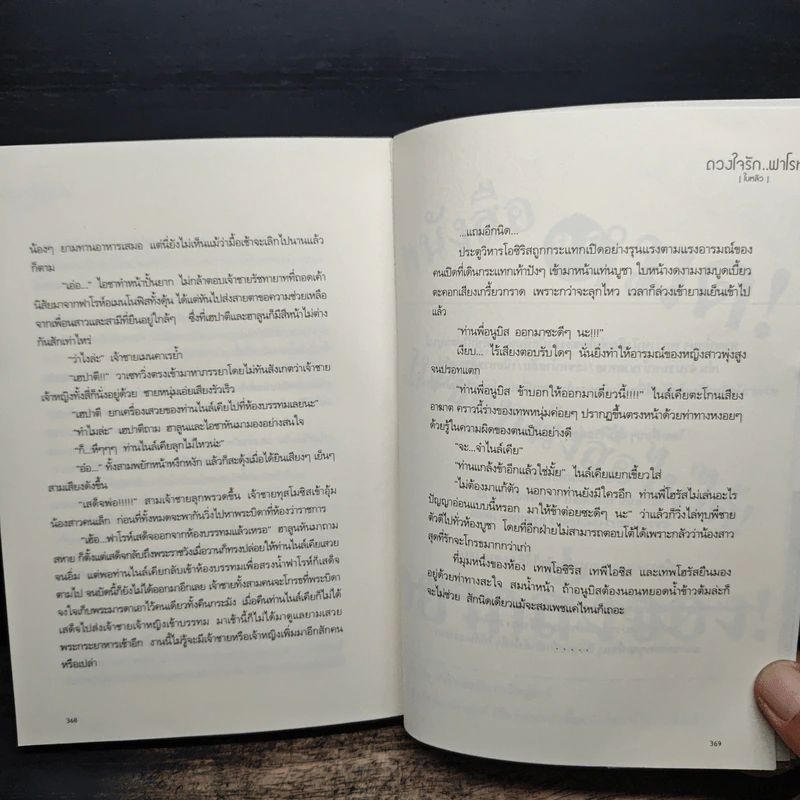 น้องๆ ยามทานอาหารเสมอ แต่นี่ยังไม่เห็นแม้ว่ามื้อเช้าจะเลิกไปนานแล้ว
ก็ตาม
"เอ่อ..." ไอซาทำหน้าปั้นยาก ไม่กล้าตอบเจ้าชายรัชทายาทที่ถอดเค้า
นิสัยมาจากฟาโรห์อเมนโนฟิสทั้งดุ้น ได้แต่หันไปส่งสายตาขอความช่วยเหลือ
จากเพื่อนสาวและสามีที่ยืนอยู่ใกล้ๆ ซึ่งที่เฮปาตีและฮาลูนก็มีสีหน้าไม่ต่าง
กันสักเท่าไหร่
"ว่าไงล่ะ" เจ้าชายเมนคาเรย้ำ
"เฮปาตี!!" วาเซทวิ่งตรงเข้ามาหาภรรยาโดยไม่ทันสังเกตว่าเจ้าชาย
เจ้าหญิงทั้งสี่ก็นั่งอยู่ด้วย ชายหนุ่มเอ่ยเสียงรัวเร็ว
"เฮปาตี ยกเครื่องเสวยของท่านไนล์เคียไปที่ห้องบรรทมเลยนะ"
"ทำไมล่ะ" เฮปาตีถาม ฮาลูนและไอซาหันมามองอย่างสนใจ
"ก็...หึๆๆๆ ท่านไนล์เคียลุกไม่ไหวน่ะ"
"อ่อ..." ทั้งสามพยักหน้าหงึกหงัก แล้วก็สะดุ้งเมื่อได้ยินเสียงๆ เย็นๆ
สามเสียงดังขึ้น
"เสด็จพ่อ!!!!!" สามเจ้าชายลุกพรวดขึ้น เจ้าชายทุสโมซิสเข้าอุ้ม
น้องสาวคนเล็ก ก่อนที่ทั้งหมดจะพากันวิ่งไปหาพระบิดาที่ห้องว่าราชการ
"เฮ้อ...ฟาโรห์เสด็จออกจากห้องบรรทมแล้วเหรอ" ฮาลูนหันมาถาม
สหาย ก็ตั้งแต่เสด็จกลับถึงพระราชวังเมื่อวานก็ทรงปล่อยให้ท่านไนล์เคียเสวย
จนอิ่ม แต่พอท่านไนล์เคียกลับเข้าห้องบรรทมเพื่อสรงน้ำฟาโรห์ก็เสด็จ
ตามไป จนบัดนี้ก็ยังไม่ได้ออกมาอีกเลย เจ้าชายทั้งสามคนจะโกรธที่พระบิดา
จงใจเก็บพระมารดาเอาไว้คนเดียวทั้งคืนกระมัง เมื่อคืนท่านไนล์เคียก็ไม่ได้
เสด็จไปส่งเจ้าชายเจ้าหญิงเข้าบรรทม มาเช้านี้ก็ไม่ได้มาดูแลยามเสวย
พระกระยาหารเช้าอีก งานนี้ไม่รู้จะมีเจ้าชายหรือเจ้าหญิงเพิ่มมาอีกสักคน
หรือเปล่า
368
ดวงใจรัก..ฟาโรห์
| ใบหลิว |
...แถมอีกนิด...
ประตูวิหารโอซิริสถูกกระแทกเปิดอย่างรุนแรงตามแรงอารมณ์ของ
คนเปิดที่เดินกระแทกเท้าปังๆ เข้ามาหน้าแท่นบูชา ใบหน้างดงามงามบูดเบี้ยว
ตะคอกเสียงเกรี้ยวกราด เพราะกว่าจะลุกไหว เวลาก็ล่วงเข้ายามเย็นเข้าไป
แล้ว
"ท่านพี่อนูบิส ออกมาซะดีๆ นะ!!!"
เงียบ... ไร้เสียงตอบรับใดๆ นั่นยิ่งทำให้อารมณ์ของหญิงสาวพุ่งสูง
จนปรอทแตก
"ท่านพี่อนูบิส ข้าบอกให้ออกมาเดี๋ยวนี้!!!!" ไนล์เคียตะโกนเสียง
อาฆาต คราวนี้ร่างของเทพหนุ่มค่อยๆ ปรากฏขึ้นตรงหน้าด้วยท่าทางหงอยๆ
ด้วยรู้ในความผิดของตนเป็นอย่างดี
"จะ...จ๋าไนล์เคีย"
"ท่านแกล้งข้าอีกแล้วใช่มั้ย" ไนล์เคียแยกเขี้ยวใส่
"ไม่ต้องมาแก้ตัว นอกจากท่านยังมีใครอีก ท่านพี่โฮรัสไม่เล่นอะไร
ปัญญาอ่อนแบบนี้หรอก มาให้ข้าต่อยซะดีๆ นะ" ว่าแล้วก็วิ่งไล่ทุบพี่ชาย
ตัวดีไปทั่วห้องบูชา โดยที่อีกฝ่ายไม่สามารถตอบโต้ได้เพราะกลัวว่าน้องสาว
สุดที่รักจะโกรธมากกว่าเก่า
ที่มุมหนึ่งของห้อง เทพโอซิริส เทพีไอซิส และเทพโฮรัสยืนมอง
อยู่ด้วยท่าทางสะใจ สมน้ำหน้า ถ้าอนูบิสต้องนอนหยอดน้ำข้าวต้มล่ะก็
จะไม่ช่วย สักนิดเดียวแม้จะสมเพชแค่ไหนก็เถอะ
.....
369